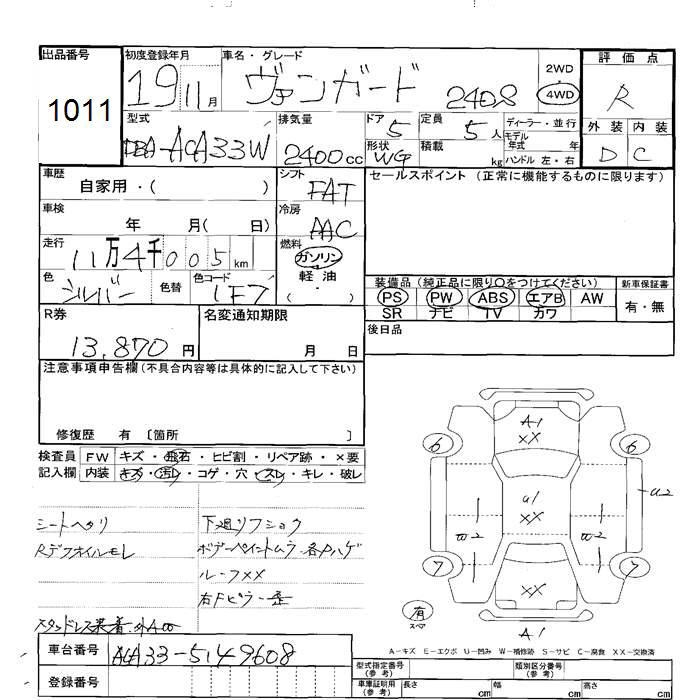 出品番号
1011
初度登録年月
19 11月
車名・グレード
ヴァンガード 240S
2WD
4WD
評価点
R
型式
DBA-ACA33W
排気量
2400cc
ドア
5
定員
5人
ディーラー・並行
モデル
年式 年
ハンドル 左・右
形状
WG
積載
kg
外装 内装
D C
車歴
自家用・( )
シフト
FAT
セールスポイント (正常に機能するものに限ります)
車検
年 月( 日)
冷房
AAC
走行
11万4千005km
燃料
ガソリン
軽油
( )
色
シルバー
色替
色コード
1F7
装備品(純正品に限り〇をつけてください)
PS PW ABS エアB AW
SR ナビ TV カワ
新車保証書
有・無
R券
13,870円
名変通知期限
月 日
後日品
注意事項申告欄(不具合内容等は具体的に記入して下さい)
修復歴 有 〔箇所 〕
検査員 FW キズ・飛石・ヒビ割・リペア跡・×要
記入欄 内装 キズ・汚レ・コゲ・穴・スレ・キレ・破レ
シートヘタリ
下廻リフショク
Rデフオイルモレ
ボデーペイントムラ 各Pハゲ
ルーフXX
右Fピラー歪
A1
XX
6 6
U1
XX
1 1
W2 W2
U2
7 7
XX
有
スペア
A1
A-キズ E-エクボ U-凹み W-補修跡 S-サビ C-腐食 XX-交換済
車台番号
ACA33-5149608
登録番号
型式指定番号
(参考)
類別区分番号
(参考)
車庫証明用
(参考)
長さ cm
幅 cm
高さ cm